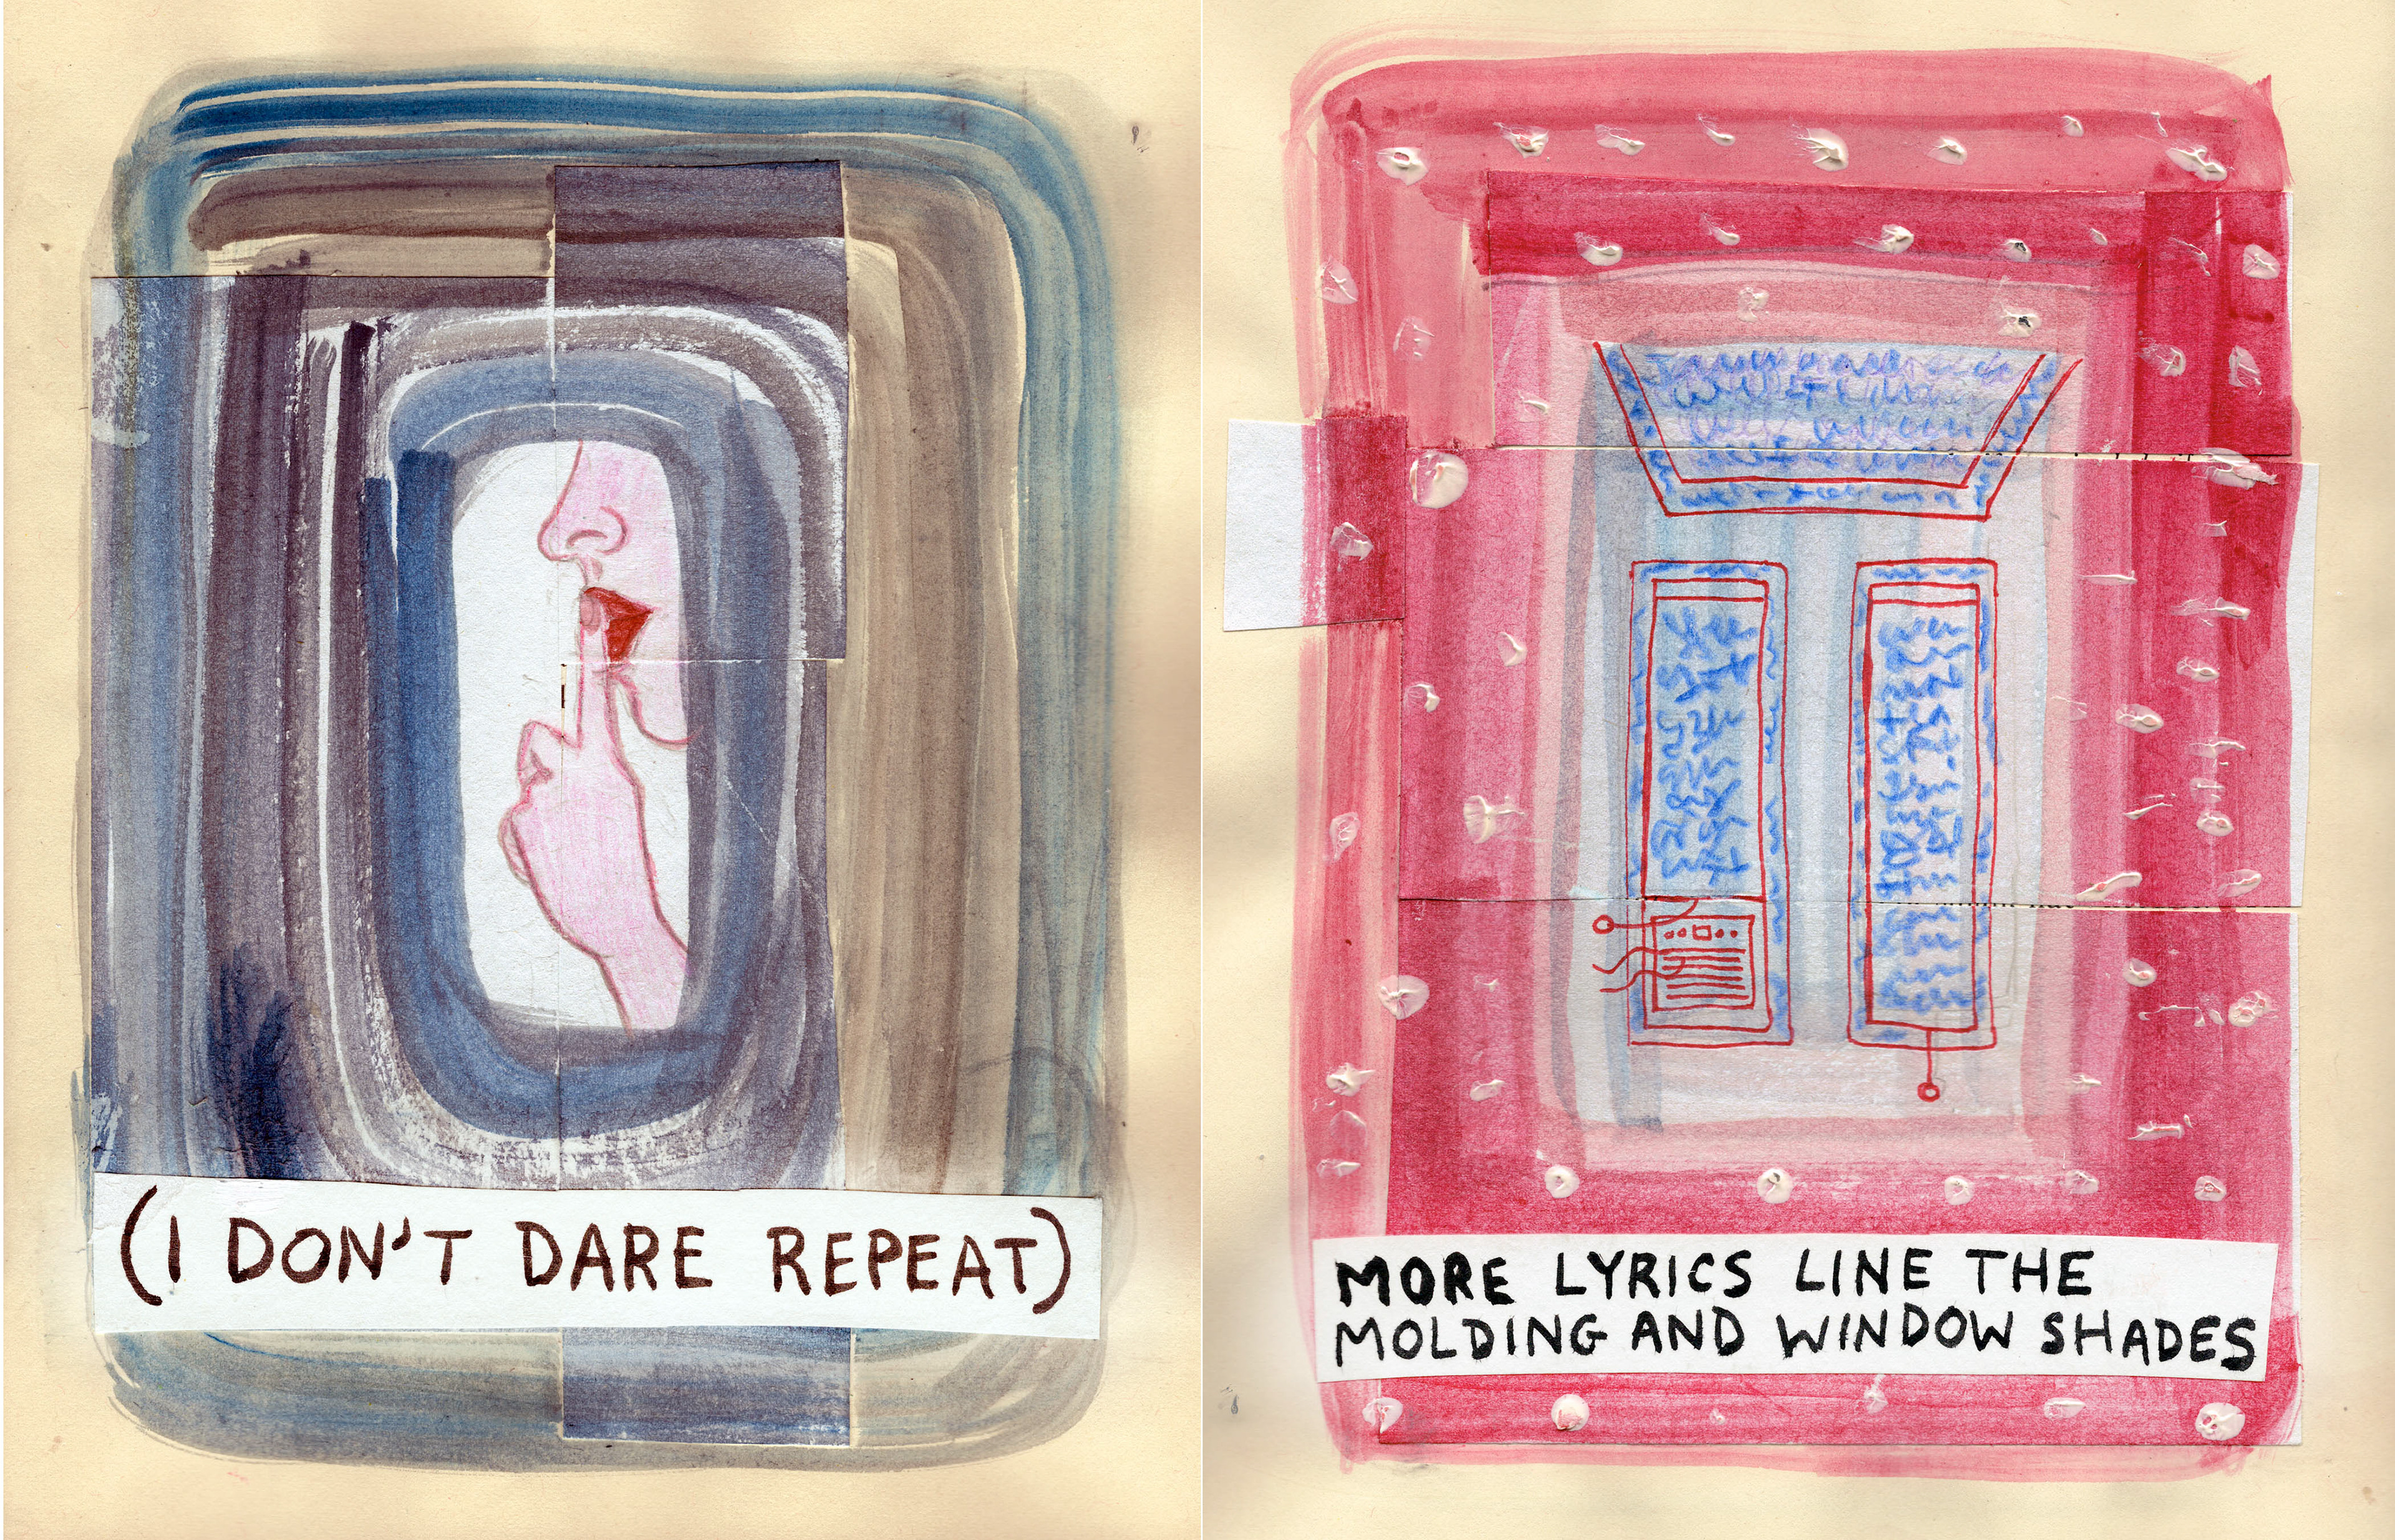 (I DON'T DARE REPEAT)
MORE LYRICS LINE THE
MOLDING AND WINDOW SHADES